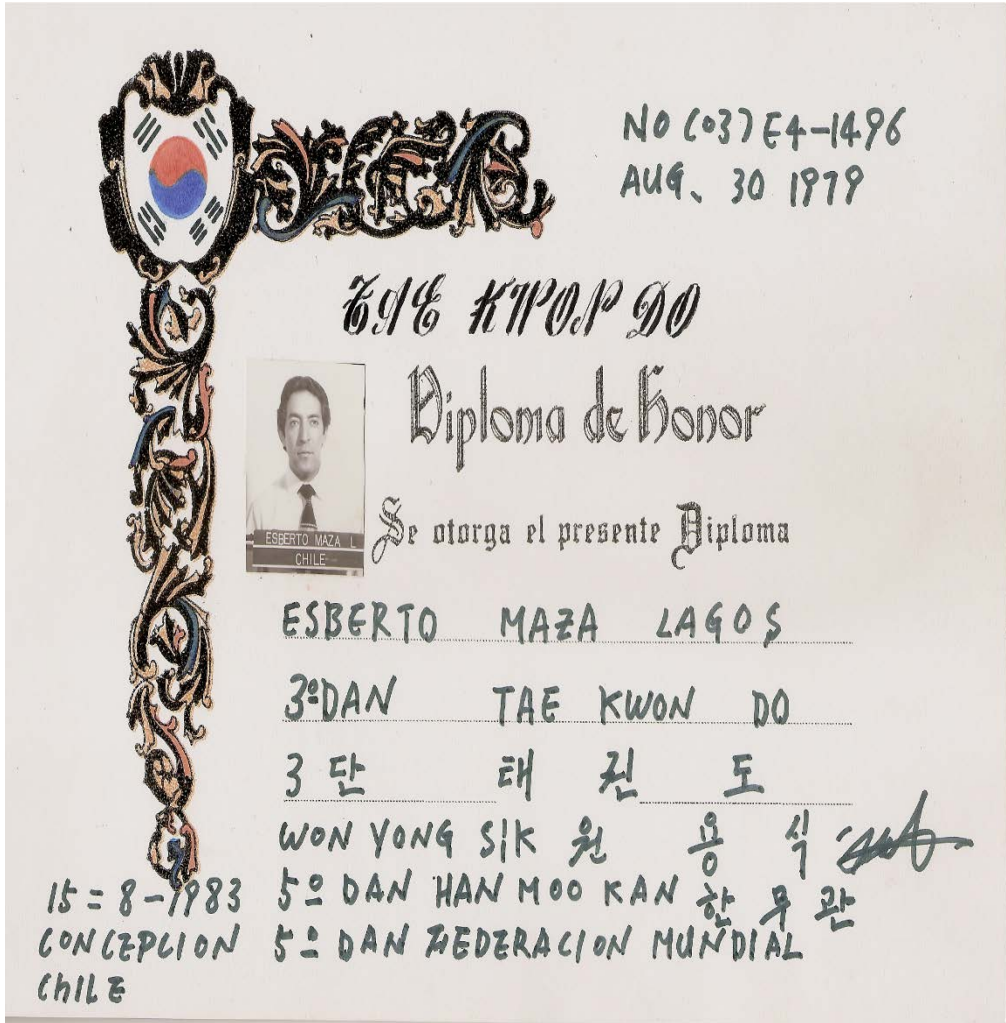 NO (03) E4-1496
AUG. 30 1979
TAE KWON DO
Diploma de Honor
ESBERTO MAZA L
CHILE
Se otorga el presente Diploma
ESBERTO MAZA LAGOS
3º DAN TAE KWON DO
3 단 태 권 도
WON YONG SIK 원 용 식
5º DAN HAN MOO KAN 한 무 관
5º DAN FEDERACION MUNDIAL
15=8-1983
CONCEPCION
ChILE